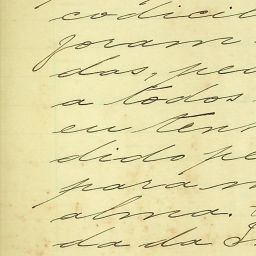 codicil
foram
das, pe
a todos
eu ten
dido pe
para m
alma.
da da I